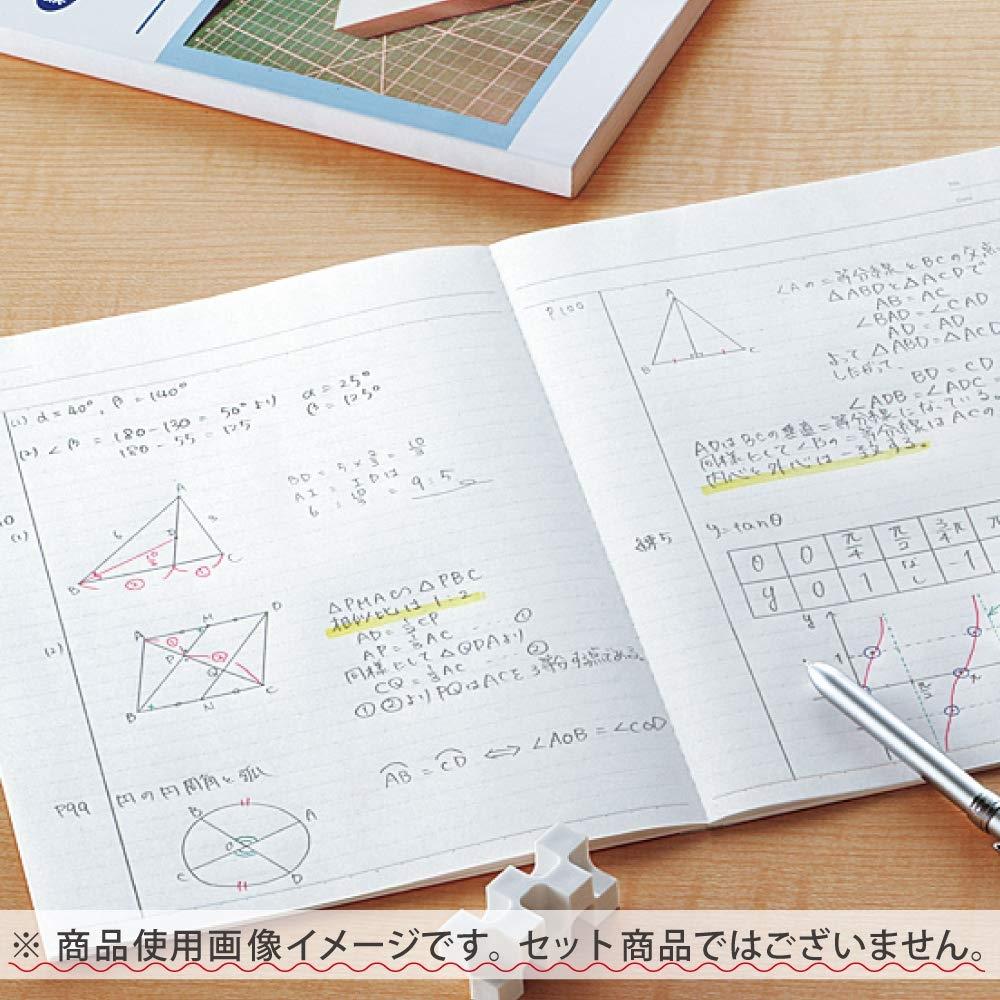 (1) α = 40°, β = 140°
α = 25°
β = 125°
(2) ∠β = 180 - 130 = 50° より
180 - 55 = 125
(1)
A
6
B
C
BD = 5 ×
AI : ID は
= 9:5
(2)
A
M
D
P
Q
B
N
C
△PMA ∽ △PBC
相似比は 1:2
AP = AC … ①
同様にして △QDAより
CQ = AC … ②
①②より PQはACを3等分する点である。
P99
円の円周角と弧
B
A
O
C
D
AB = CD ⇔ ∠AOB = ∠COD
P100
A
B
C
∠Aの二等分線とBCの交点
△ABDと△ACDで
AB = AC
∠BAD = ∠CAD
AD = AD
よって △ABD = △ACD
したがって、
BD = CD
∠ADB = ∠ADC =
ADはBCの垂直二等分線になっている。
同様にして∠Bの二等分線はACの
内心と外心は一致する。
練5
y = tanθ
θ 0 π/4 π/2 3/4π π
y 0 1 なし -1
y
1
π/2
π
※ 商品使用画像イメージです。セット商品ではございません。